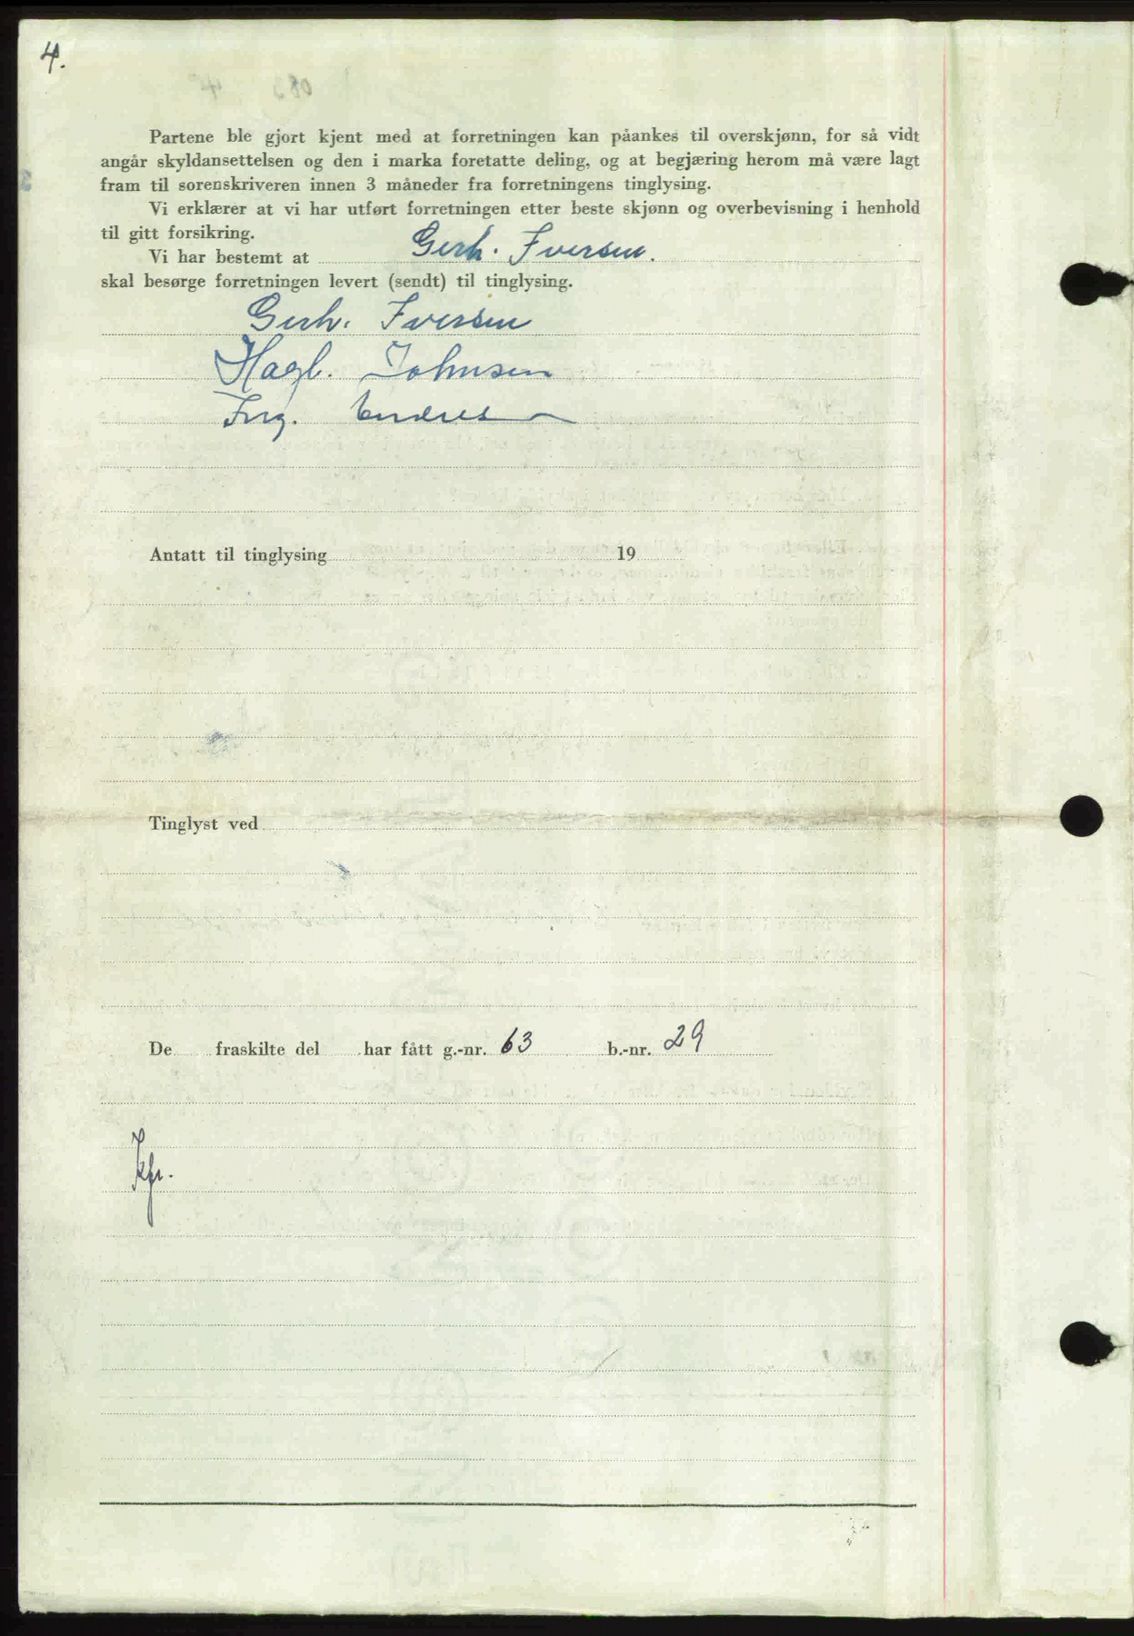 4.
Partene ble gjort kjent med at forretningen kan påankes til overskjønn, for så vidt
angår skyldansettelsen og den i marka foretatte deling, og at begjæring herom må være lagt
fram til sorenskriveren innen 3 måneder fra forretningens tinglysing.
Vi erklærer at vi har utført forretningen etter beste skjønn og overbevisning i henhold
til gitt forsikring.
Vi har bestemt at Gerh. Iversen.
skal besørge forretningen levert (sendt) til tinglysing.
Gerh. Iversen
Hagb. Johnsen
Ing. Endresen
Antatt til tinglysing 19
Tinglyst ved
De fraskilte del har fått g.-nr. 63 b.-nr. 29
Kfr.